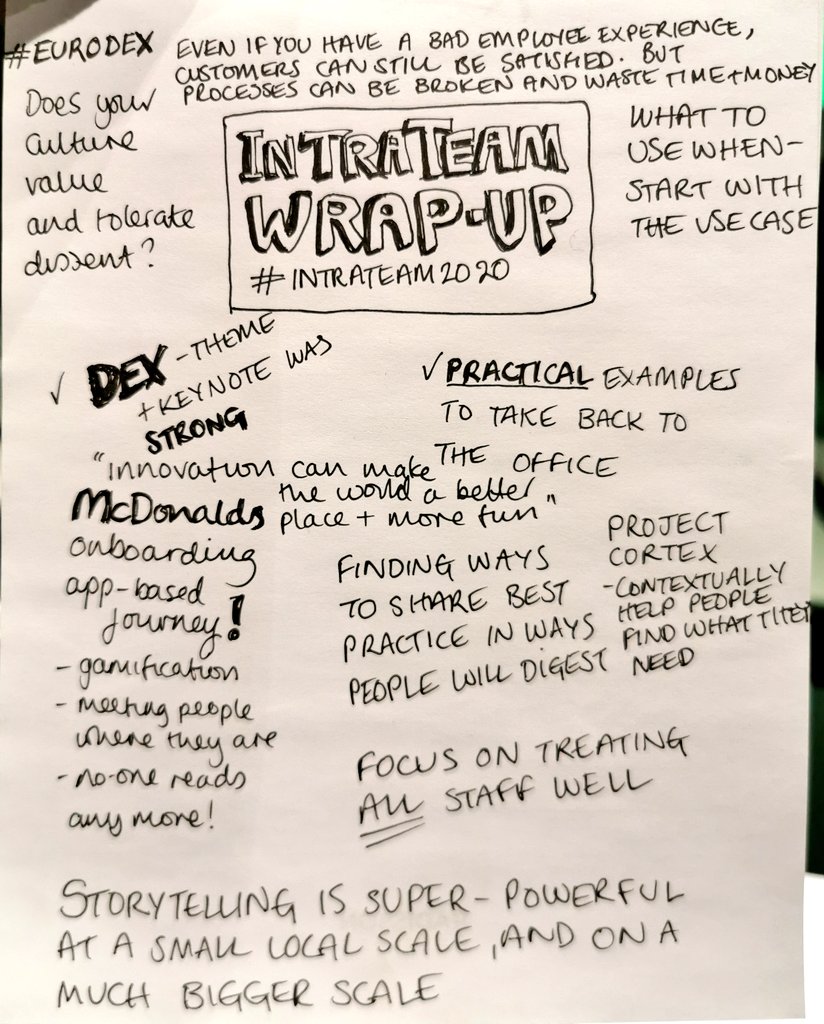 #EURODEX
EVEN IF YOU HAVE A BAD EMPLOYEE EXPERIENCE,
CUSTOMERS CAN STILL BE SATISFIED. BUT
PROCESSES CAN BE BROKEN AND WASTE TIME + MONEY
Does your
culture
value
and tolerate
dissent?
INTRATEAM
WRAP-UP
#INTRATEAM2020
WHAT TO
USE WHEN -
START WITH
THE USE CASE
✓ DEX - THEME
+ KEYNOTE WAS
STRONG
✓ PRACTICAL EXAMPLES
TO TAKE BACK TO
THE OFFICE
"innovation can make
the world a better
place + more fun"
McDonalds
onboarding
app-based
journey!
- gamification
- meeting people
where they are
- no-one reads
any more!
FINDING WAYS
TO SHARE BEST
PRACTICE IN WAYS
PEOPLE WILL DIGEST
PROJECT
CORTEX
- CONTEXTUALLY
HELP PEOPLE
FIND WHAT THEY
NEED
FOCUS ON TREATING
ALL STAFF WELL
STORYTELLING IS SUPER-POWERFUL
AT A SMALL LOCAL SCALE, AND ON A
MUCH BIGGER SCALE